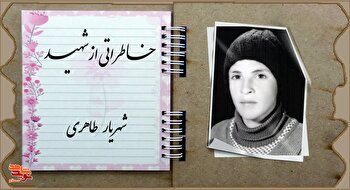 خاطراتی از شهید
شهریار طاهری